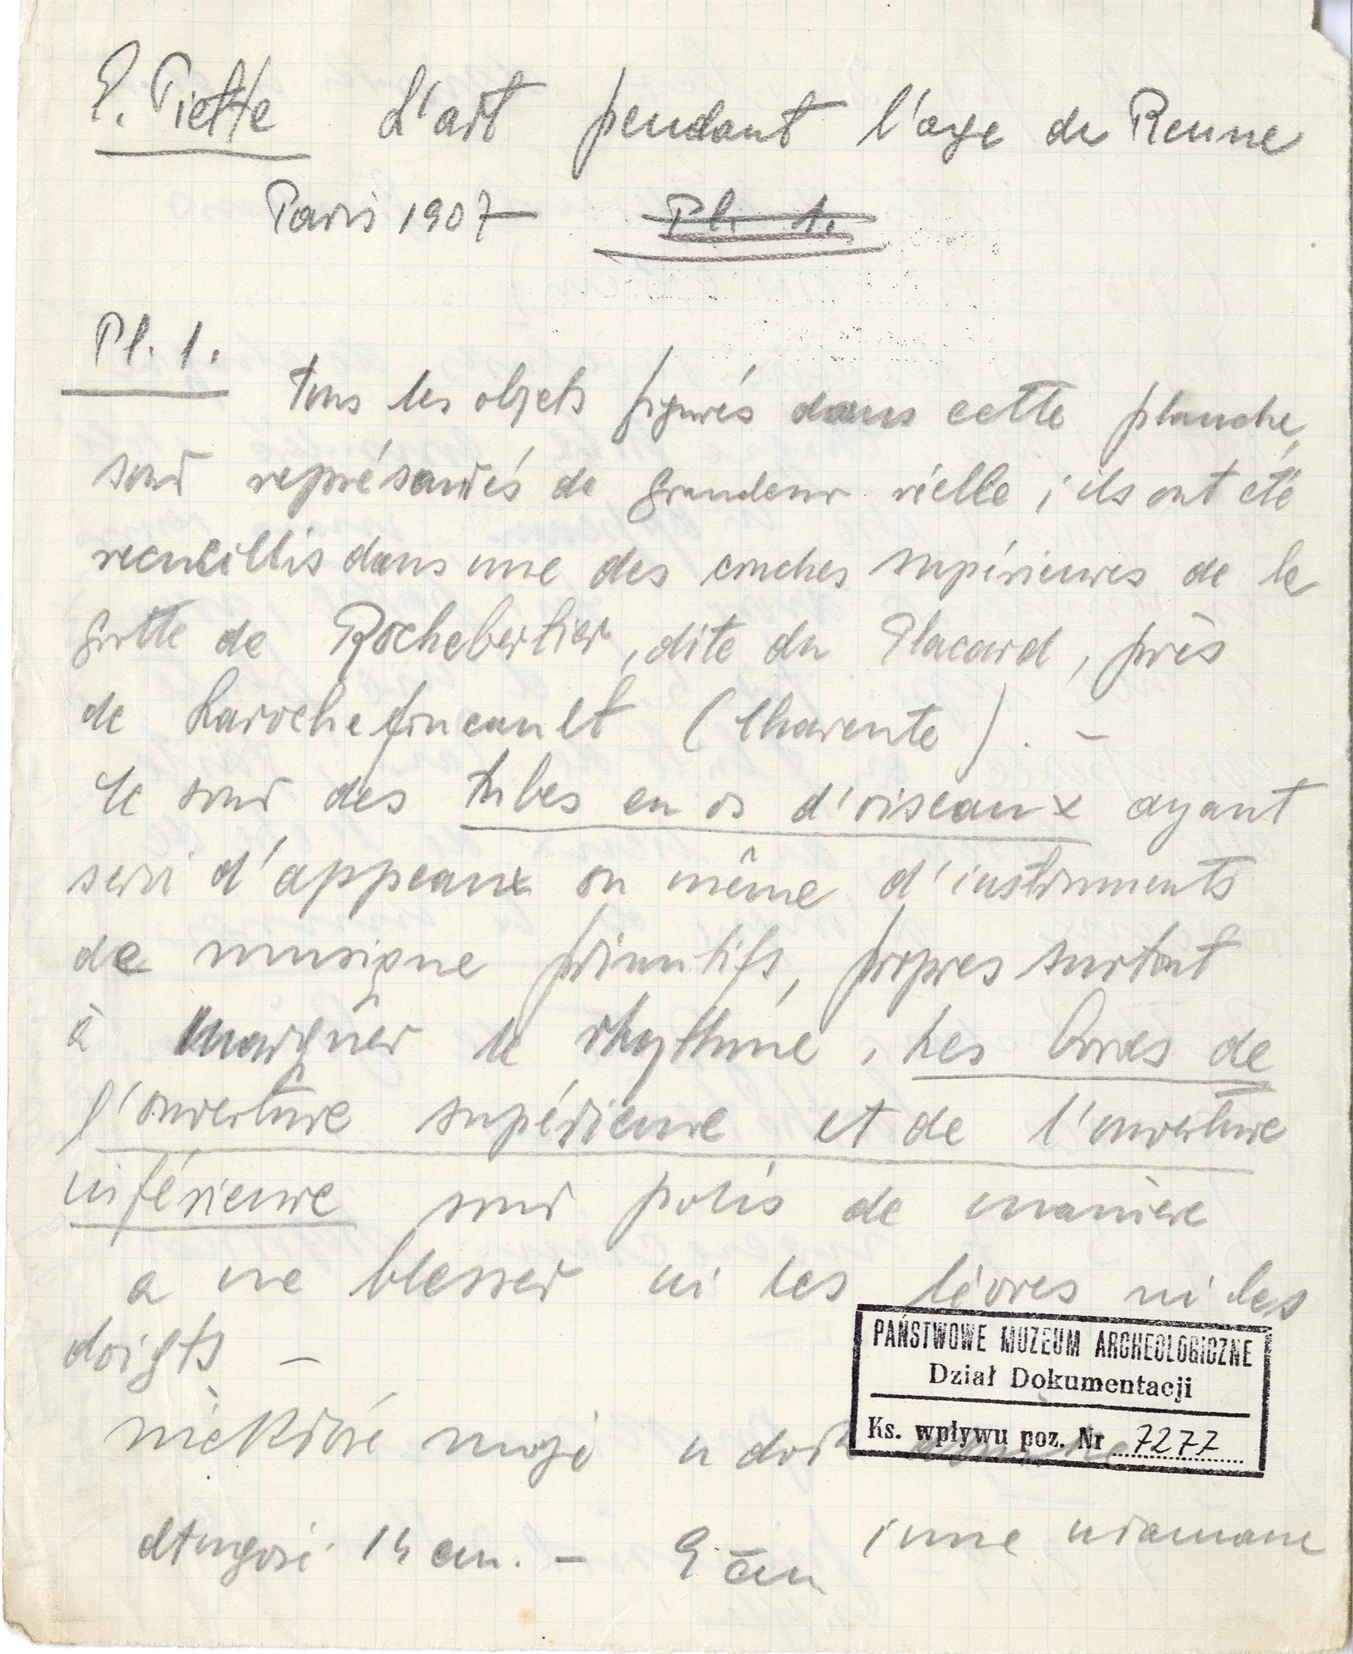 E. Piette L'art pendant l'age du Renne
Paris 1907 Pl. 1.
Pl. 1.
tous les objets figurés dans cette planche,
sont représentés de grandeur réelle ; ils ont été
recueillis dans une des couches supérieures de la
grotte de Rochebertier, dite du Placard, près
de Larochefoucault (Charente). –
Ce sont des tubes en os d'oiseaux ayant
servi d'appeaux ou même d'instruments
de musique primitifs, propres surtout
à marquer le rhythme, Les bords de
l'ouverture supérieure et de l'ouverture
inférieure sont polis de manière
a ne blesser ni les lèvres ni les
doigts –
niektóre mają
długość 14 cm. – 9 cm inne ułamane
PAŃSTWOWE MUZEUM ARCHEOLOGICZNE
Dział Dokumentacji
Ks. wpływu poz. Nr 7277